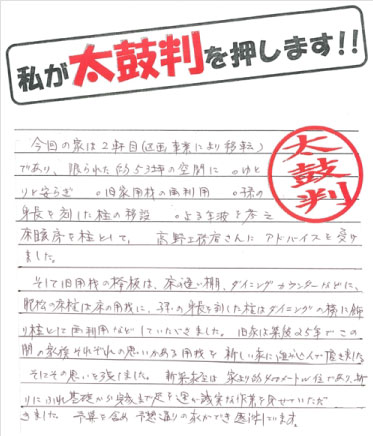 私が太鼓判を押します!!
太鼓判
今回の家は2軒目(区画事業により移転)
であり、限られた 53坪の空間に ゆと
りと安らぎ 旧家用材の再利用 孫の
身長を刻した柱の移設
床 として、高野工務店さんに アドバイスを受け
ました。
そして旧用材の欅板は、床の違い棚、ダイニングカウンターなどに、
肥松の床柱は床の用材に、子供の身長を刻した柱はダイニングの横に飾
り柱として再利用など していただきました。旧家は築後25年でこの
間の家族それぞれの思いがある用材を新しい家に 頂きました。
そしてその思いを残しました。新築 は 家より 位であり、
にふれ基礎から完成まで足を運び誠実な作業を見せていただ
きました。予算を含め 予想通りの家ができ感謝しています。